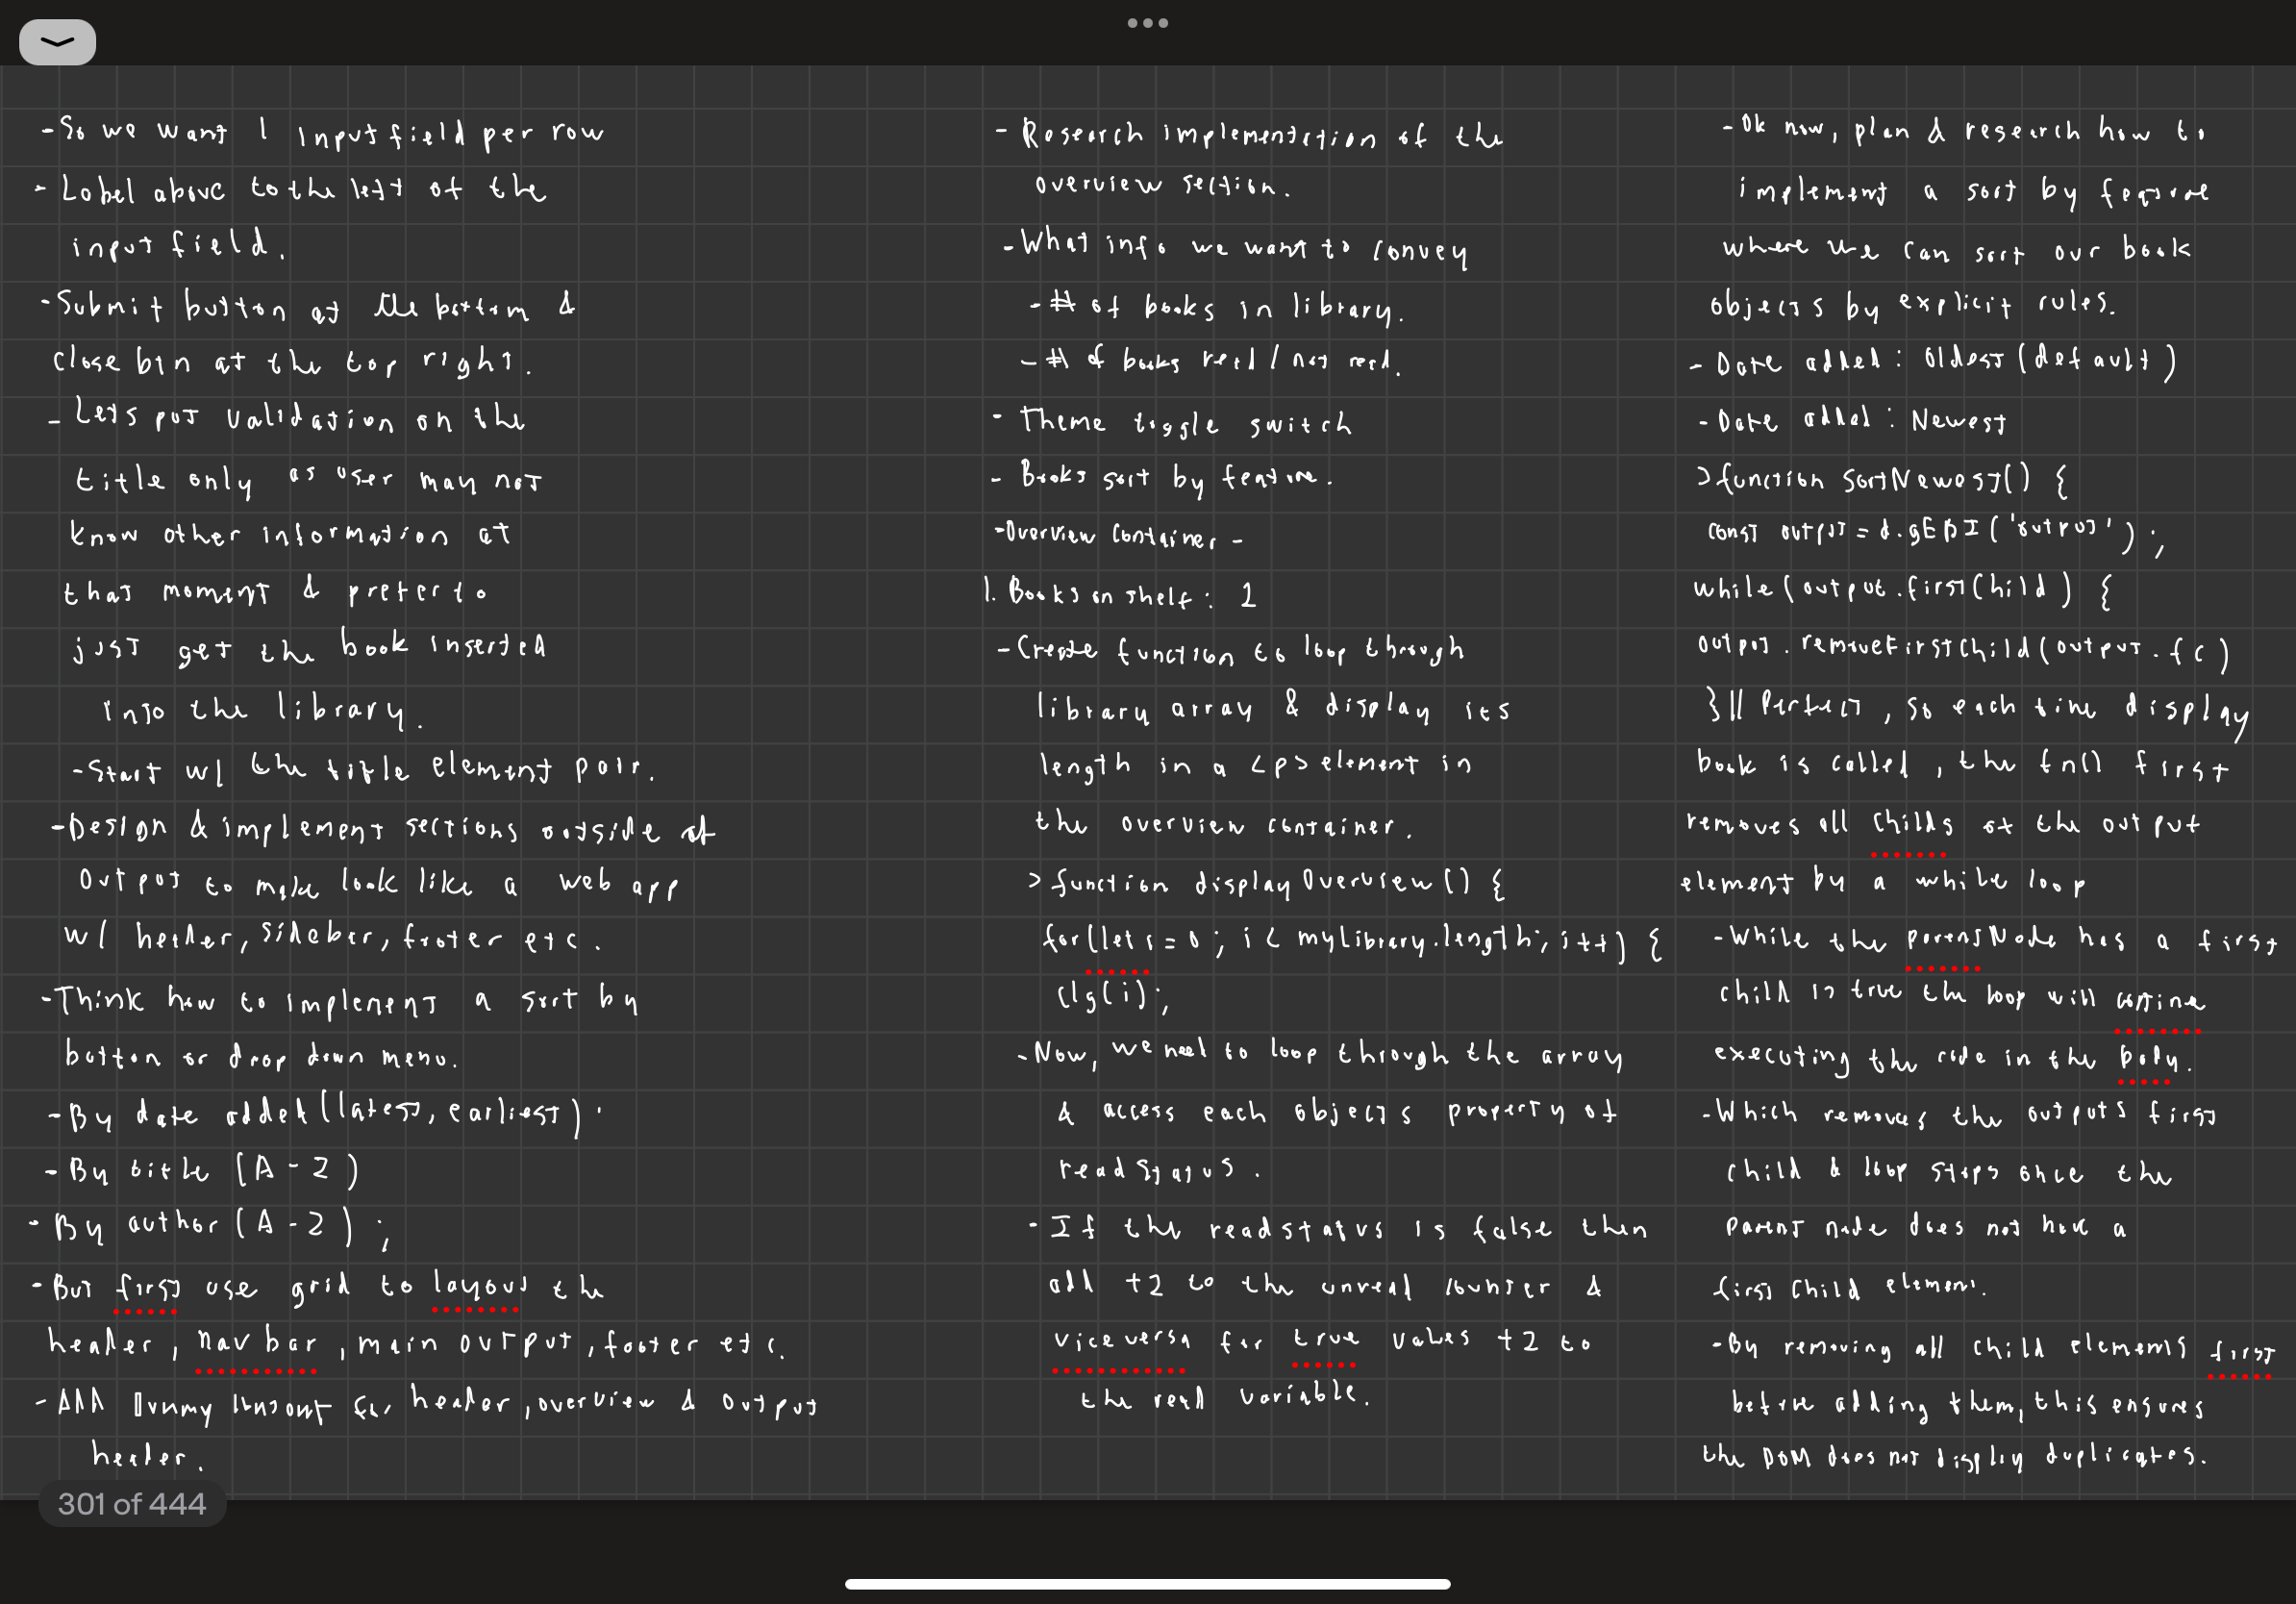 -So we want 1 input field per row
- Label above to the left of the
input field.
-Submit button at the bottom &
close btn at the top right.
- Lets put validation on the
title only as user may not
know other information at
that moment & prefer to
just get the book inserted
into the library.
-Start w/ the title element pair.
-Design & implement sections outside of
output to make look like a web app
w/ header, sidebar, footer etc.
-Think how to implement a sort by
button or drop down menu.
-By date added (latest, earliest).
-By title (A-Z)
-By author (A-Z);
-But first use grid to layout the
header, nav bar, main output, footer etc.
-Add Dummy content for header, overview & output
header.
- Research implementation of the
overview section.
-What info we want to convey
-# of books in library.
-# of books read / not read.
- Theme toggle switch
- Books sort by feature.
-Overview Container-
1. Books on shelf: 1
-Create function to loop through
library array & display its
length in a <p> element in
the overview container.
> function displayOverview() {
for(let i=0; i < myLibrary.length; i++) {
clg(i);
-Now, we need to loop through the array
& access each objects property of
readStatus.
- If the readstatus is false then
add +1 to the unread counter &
vice versa for true values +1 to
the read variable.
-Ok now, plan & research how to
implement a sort by feature
where we can sort our book
objects by explicit rules.
- Date added: Oldest (default)
-Date added: Newest
>function SortNewest() {
const output = d.gEBI('output');
while(output.firstChild) {
output.removeFirstChild(output.fc)
}|| Perfect, so each time display
book is called, the fn() first
removes all childs of the output
element by a while loop
-While the parentNode has a first
child is true the loop will contine
executing the code in the body.
-Which removes the outputs first
child & loop stops once the
parent node does not have a
first child element.
-By removing all child elements first
before adding them, this ensures
the DOM does not display duplicates.
301 of 444